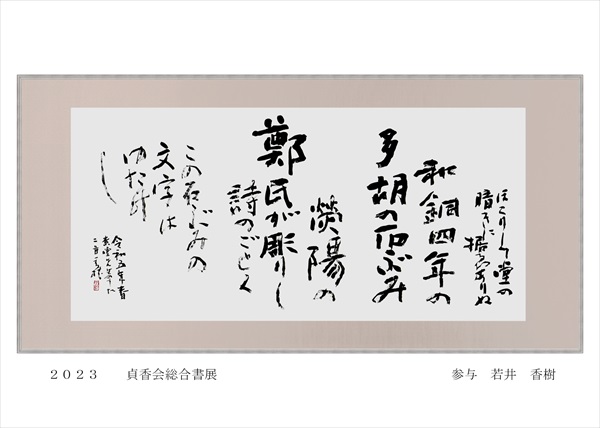 ほこりし堂の
暗きに据ゑありぬ
和銅四年の
多胡の石ぶみ
滎陽の
鄭氏が彫りし
詩のごとく
この石ぶみの
文字は
ゆたけし
令和五年春
2023 貞香会総合書展
参与 若井 香樹